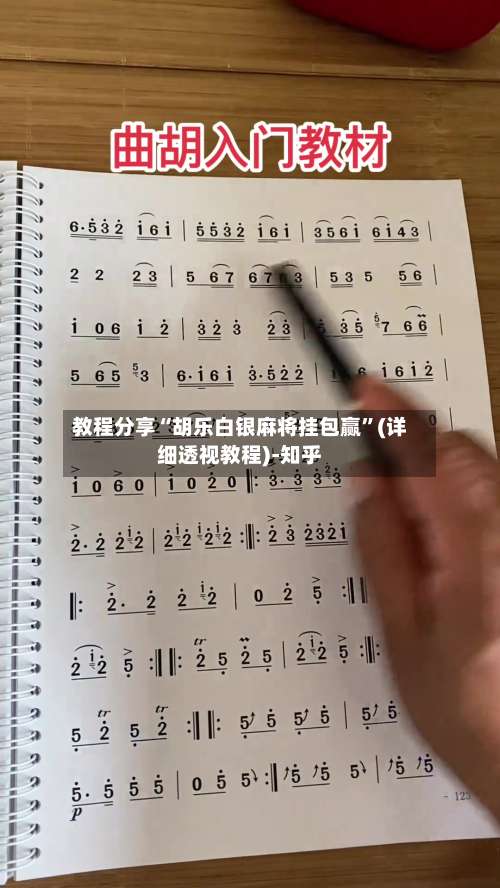 曲胡入门教材
6·532 i6i | 5532 i6i | 3561 6143 |
2 2 23 | 5 67 6763 | 53 5 56 |
1 06 i 2 | 323 3 23 | 5 35 57 66
5 65 53 | 6·i6i 3·522 | 6i 6i2 |
教程分享“胡乐白银麻将挂包赢”(详
细透视教程)-知乎
i 0 6 0 | i 0 2 0 :|: 3· 3 323
2· 2 2i2 | 2i2 i2i2 :|: 2 3 232i
|: 2· 2 2 i2 | 0 2 5 :||
2i2 5 :||: 2 5 2 5 | 2i2 5 :|:
tr tr
5 2 5 2 :||: 5 5 5 5 | 5 5
5· 5 5 5 | 0 5 5 :| 5 5 5 | 5 5
p
- 123